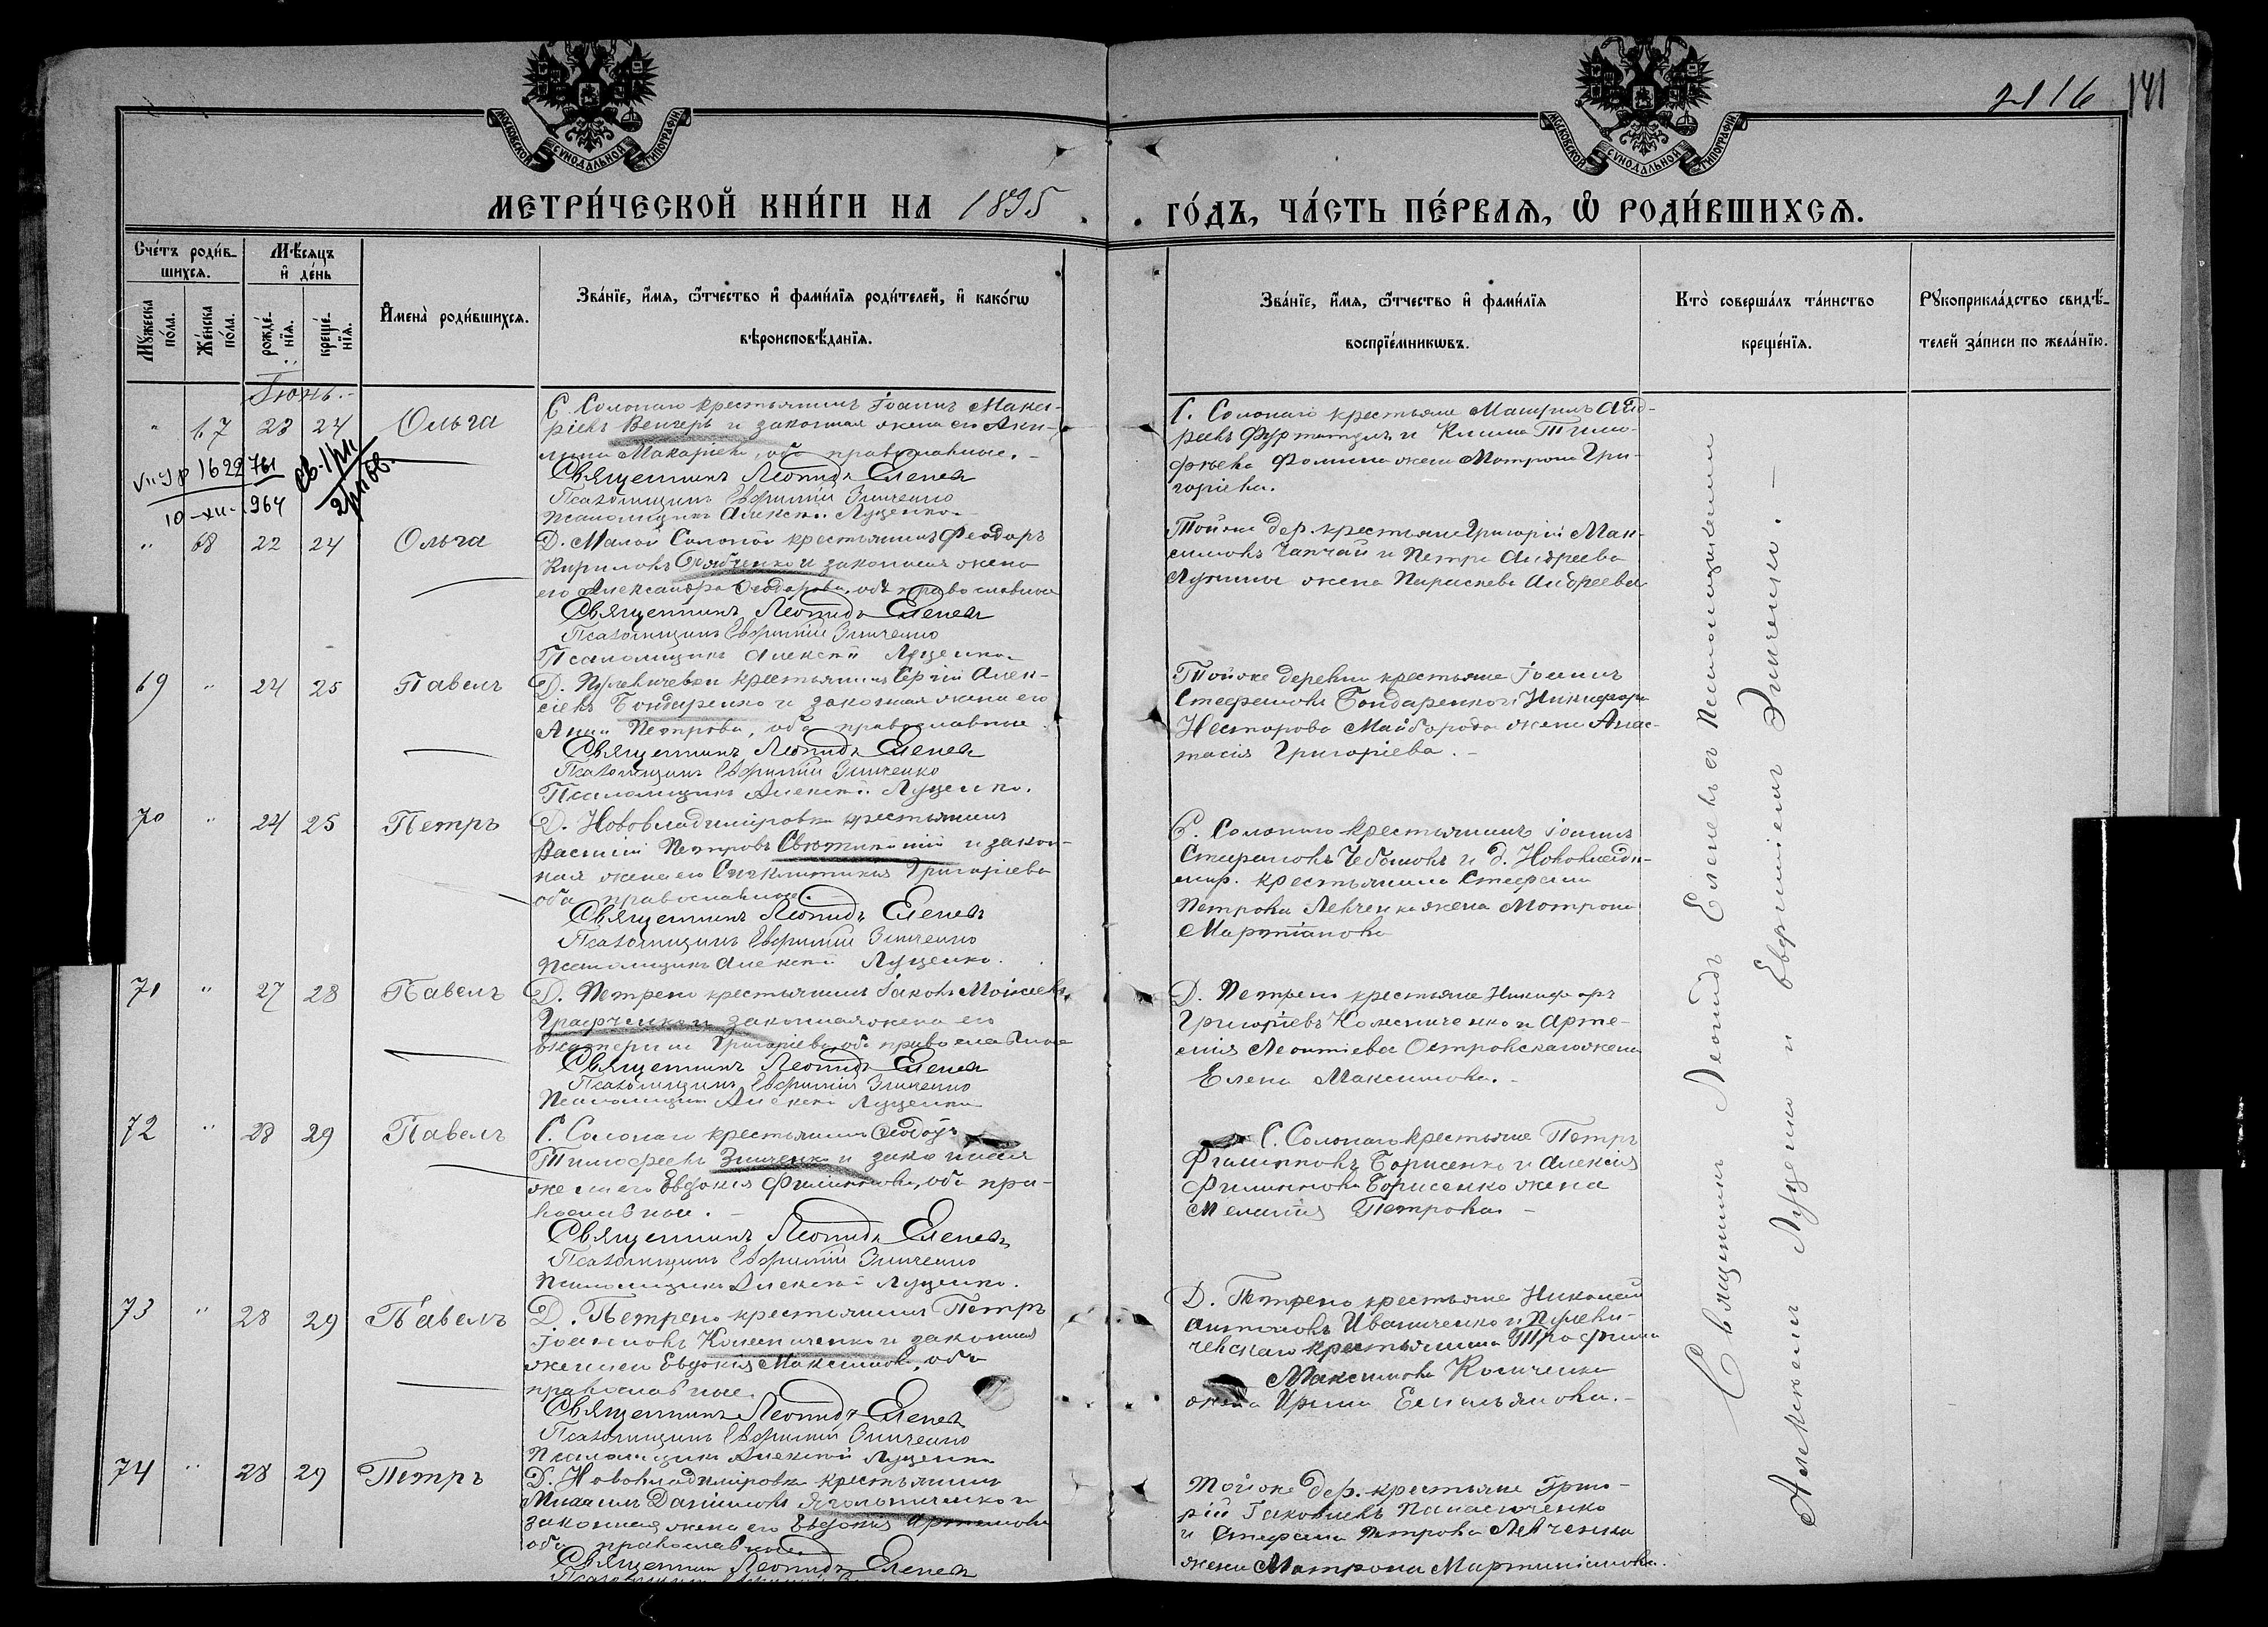 2116 141
МОСКОВСКОЙ СѴНОДАЛЬНОЙ ТИПОГРАФІИ
МОСКОВСКОЙ СѴНОДАЛЬНОЙ ТИПОГРАФІИ
МЕТРИ́ЧЕСКОЙ КНИ́ГИ НА 1895
ГО́ДЪ, ЧА́СТЬ ПЕ́РВАѦ, Ѡ҆ РОДИ́ВШИХСѦ.
Сче́тъ роди́в-
шихсѧ.
Мꙋ́жеска по́ла.
Же́нска по́ла.
Мѣ́сѧцъ
и҆ де́нь
рожде́-
нїѧ.
креще́-
нїѧ.
И҆мена̀ роди́вшихсѧ.
Зва́нїе, и҆́мѧ, ѻ҆́тчество и҆ фами́лїѧ роди́телей, и҆ како́гѡ
вѣроисповѣ́данїѧ.
Зва́нїе, и҆́мѧ, ѻ҆́тчество и҆ фами́лїѧ
воспрїе́мникѡвъ.
Кто̀ соверша́лъ та́инство
креще́нїѧ.
Рꙋкоприкла́дство свидѣ́-
телей за́писи по жела́нїю.
Іюнь.
" 67 23 24 Ольга
С. Солонаго крестьянинъ Іоаннъ Мака-
ріевъ Венгеръ и законная жена его Аки-
лина Макаріева, оба православные.
Священникъ Леонидъ Еленевъ
Псаломщикъ Евфимій Зинченко
Псаломщикъ Алексѣй Луценко
С. Солонаго крестьяне Анд-
реевъ и Тимо-
фѣева Фомина жена Матрона Гри-
горіева.
1622 761
10-XII-1964
" 68 22 24 Ольга
Д. Малой Солоной крестьянинъ Феодоръ
Кириловъ и законная жена
его Александра Феодорова, оба православные
Священникъ Леонидъ Еленевъ
Псаломщикъ Евфимій Зинченко
Псаломщикъ Алексѣй Луценко
Тойже дер. крестьяне Григорій Мак-
симовъ Чапчай и Петра Андреева
жена Параскева Андреева
69 " 24 25 Павелъ
Д. Пулевичевки крестьянинъ Сергій Алек-
сіевъ Бондаренко и законная жена его
Анна Петрова, оба православные
Священникъ Леонидъ Еленевъ
Псаломщикъ Евфимій Зинченко
Псаломщикъ Алексѣй Луценко.
Тойже деревни крестьяне Іоаннъ
Стефановъ Бондаренко и Никифора
Несторова Майборода жена Анас-
тасія Григоріева.
70 " 24 25 Петръ
Д. Нововладиміровки крестьянинъ
Василій Петровъ и закон-
ная жена его Синклитикія Григоріева
оба православные.
Священникъ Леонидъ Еленевъ
Псаломщикъ Евфимій Зинченко
Псаломщикъ Алексѣй Луценко.
С. Солонаго крестьянинъ Іоаннъ
Стефановъ и д. Нововлади-
мир. крестьянина Стефана
Петрова Левченка жена Матрона
Мартіанова
71 " 27 28 Павелъ
Д. Петрено крестьянинъ Іаковъ Моисеевъ
и законная жена его
Екатерина Григоріева, оба православные
Священникъ Леонидъ Еленевъ
Псаломщикъ Евфимій Зинченко
Псаломщикъ Алексѣй Луценко
Д. Петрено крестьяне Никифоръ
Григоріевъ Колесниченко и Арте-
мія Леонтіева Островскаго жена
Елена Максимова.
72 " 28 29 Павелъ
С. Солонаго крестьянинъ Феодоръ
Тимофеевъ Зинченко и законная
жена его Евдокія Филиппова, оба пра-
вославные.
Священникъ Леонидъ Еленевъ
Псаломщикъ Евфимій Зинченко
Псаломщикъ Алексѣй Луценко.
С. Солонаго крестьяне Петръ
Филипповъ Борисенко и Алексія
Филиппова Борисенко жена
Меланія Петрова.
73 " 28 29 Павелъ
Д. Петрено крестьянинъ Петръ
Іоанновъ Колесниченко и законная
жена его Евдокія Максимова, оба
православные.
Священникъ Леонидъ Еленевъ
Псаломщикъ Евфимій Зинченко
Псаломщикъ Алексѣй Луценко
Д. Петрено крестьяне Николай
Антоновъ Иваниченко и Пулеви-
чевскаго крестьянина Трофима
Максимова
жена Ирина Емильянова.
74 " 28 29 Петръ
Д. Нововладиміровки крестьянинъ
Михаилъ Даніиловъ Ягольниченко и
законная жена его Евдокія Артемова
оба православные
Священникъ Леонидъ Еленевъ
Тойже дер. крестьяне Григо-
рій Іаковлевъ Панасюченко
и Стефана Петрова Левченка
жена Матрона Мартиніанова.
Священникъ Леонидъ Еленевъ съ Псаломщиками
Алексѣемъ Луценко и Евфиміемъ Зинченко.